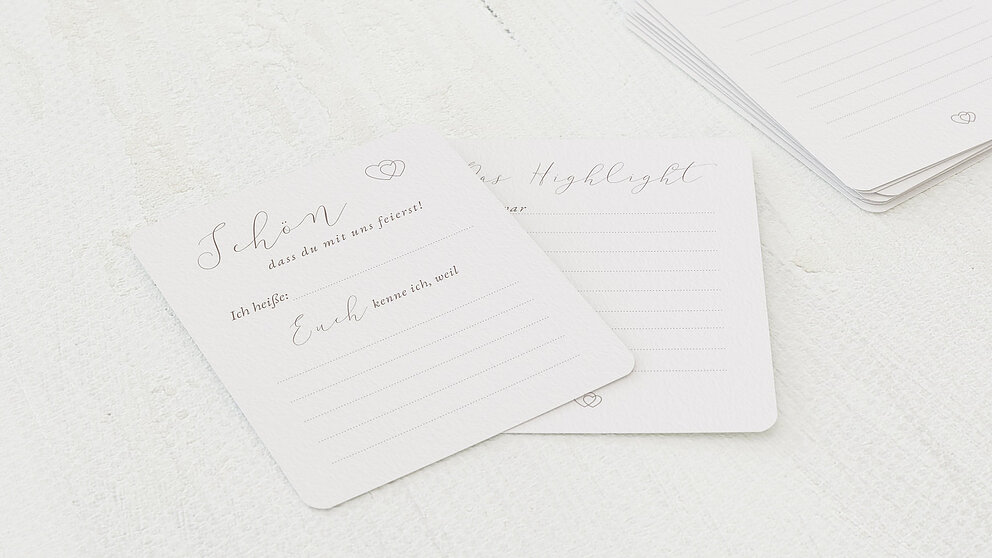 Schön
dass du mit uns feierst!
Ich heiße:
Euch kenne ich, weil
Das Highlight
war